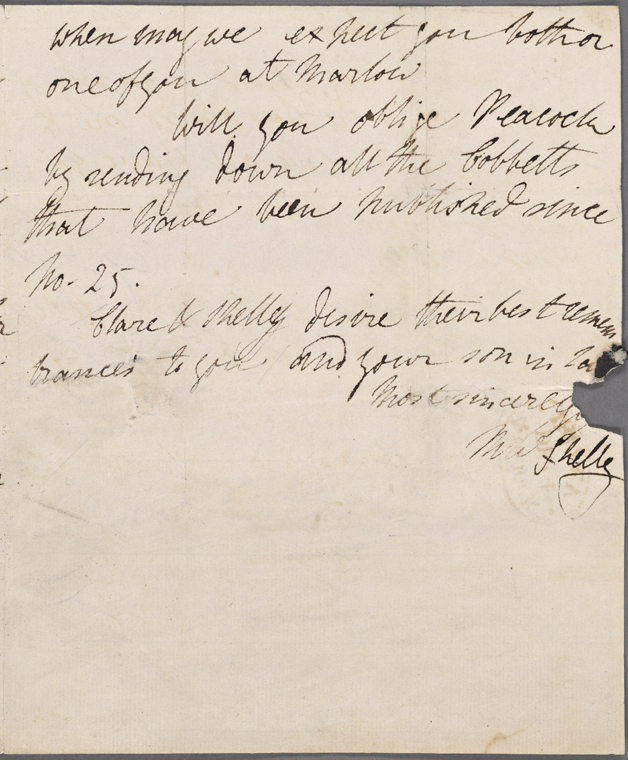 when may we expect you both or
one of you at Marlow
Will you oblige Peacock
by sending down all the Cobbetts
that have been published since
No. 25.
Clare & Shelley desire their best remem
brances to you and your son in la
Most sincerely
MW Shelley